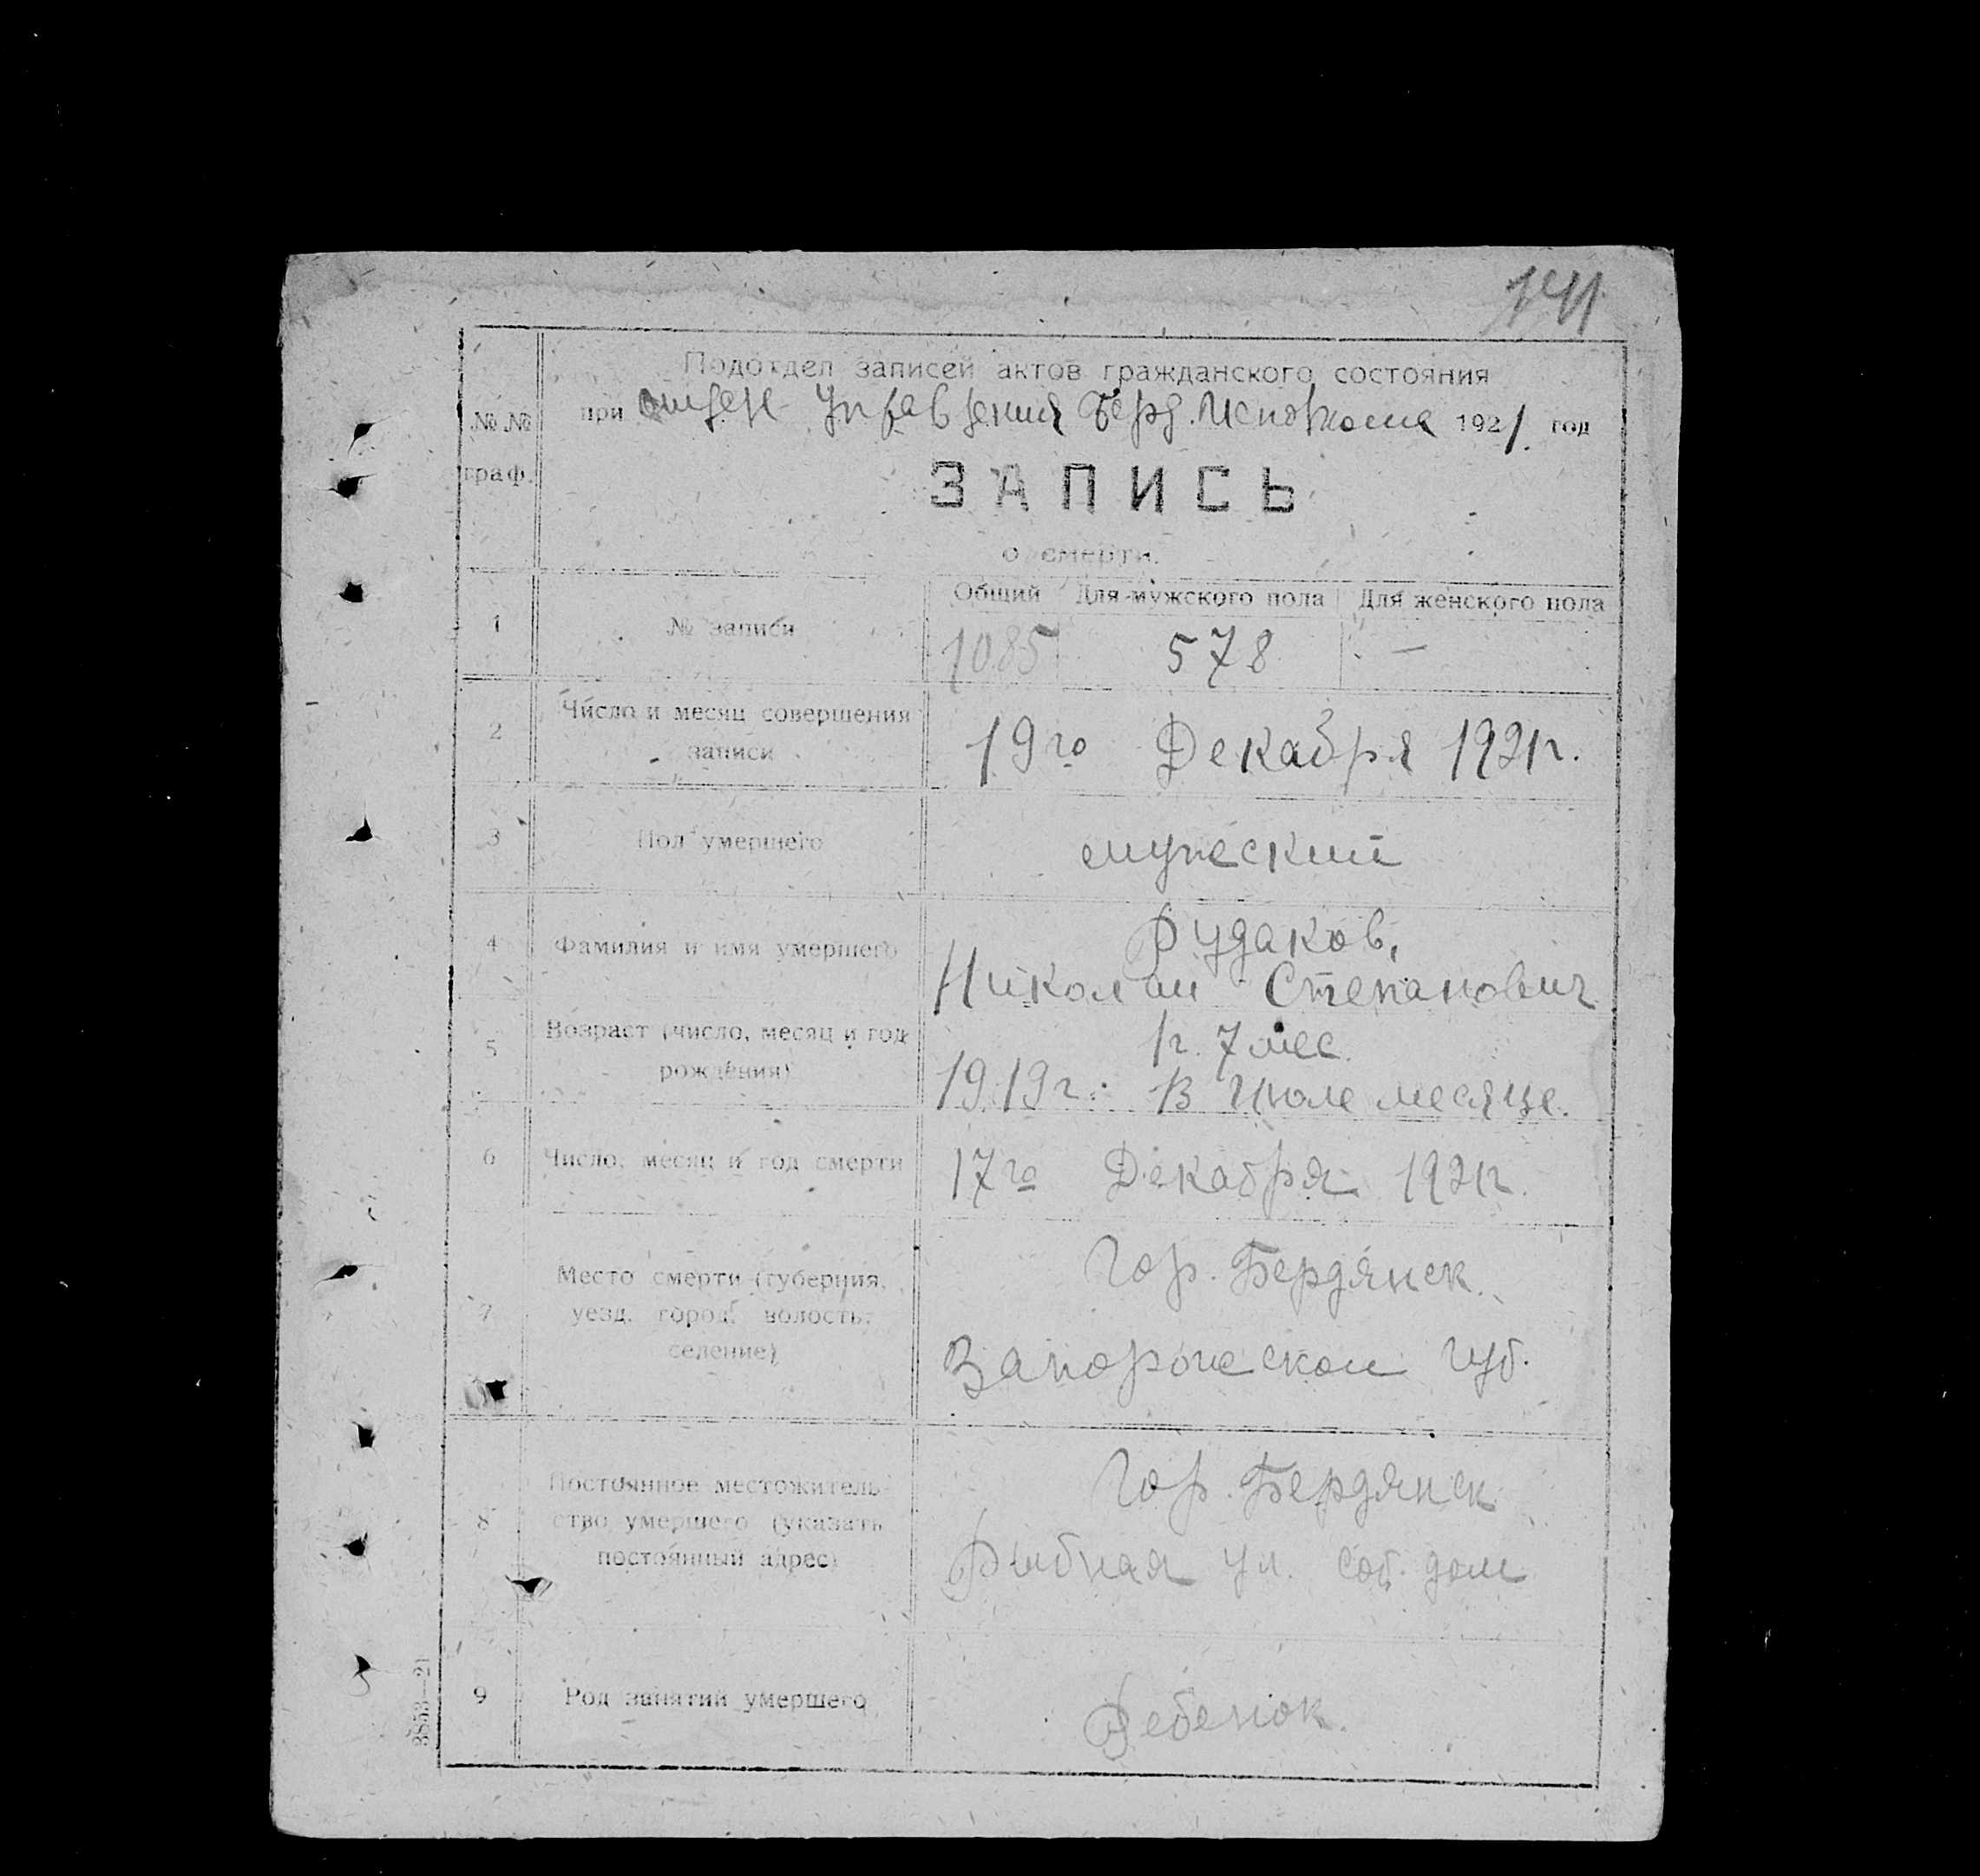 141
Подотдел записей актов гражданского состояния
при отделе Управления Берд. Исполкома 1921 год
№№ граф.
ЗАПИСЬ
о смерти.
Общий Для мужского пола Для женского пола
1 № записи 1085 578 —
2 Число и месяц совершения
записи
19го Декабря 1921г.
3 Пол умершего мужеский
4 Фамилия и имя умершего
Рудаков,
Николаи Степанович
5 Возраст (число, месяц и год
рождения)
1г. 7 мес.
1919г. В Июле месяце.
6 Число, месяц и год смерти 17го Декабря 1921г.
7 Место смерти (губерния,
уезд, город, волость,
селение)
Гор. Бердянск.
Запорожской губ.
8 Постоянное местожитель-
ство умершего (указать
постоянный адрес)
Гор. Бердянск
Рыбная ул. соб. дом
9 Род занятий умершего Ребенок.
3853—21